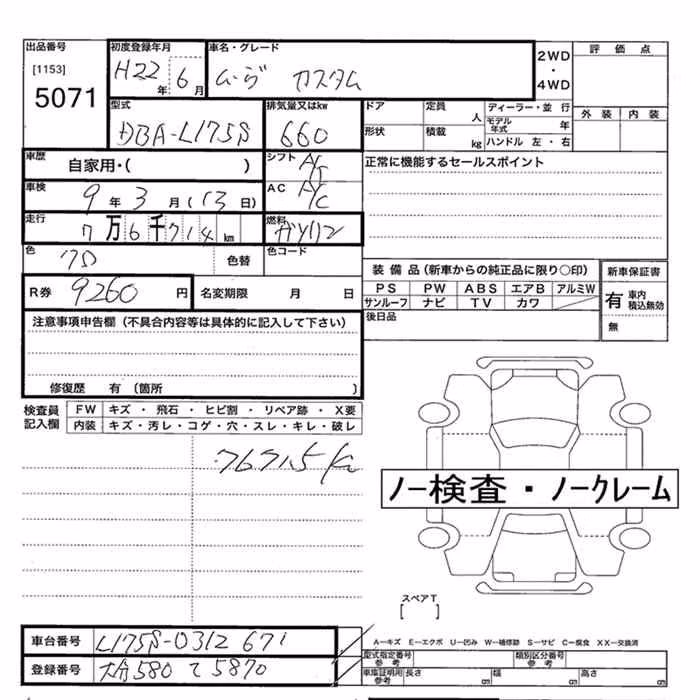 出品番号
[1153]
5071
初度登録年月
H22年 6月
車名・グレード
ムーヴ カスタム
2WD
・
4WD
評価点
外装 内装
型式
DBA-L175S
排気量又はkw
660
ドア 定員 人
形状 積載 kg
ディーラー・並行
モデル年式 年
ハンドル 左・右
車歴
自家用・( )
シフト
車検
9年 3月(13日)
AC
正常に機能するセールスポイント
走行
7万6千714km
燃料
ガソリン
色
色替
色コード
R券 9260円
名変期限 月 日
装備品(新車からの純正品に限り○印)
PS PW ABS エアB アルミW
サンルーフ ナビ TV カワ
後日品
新車保証書
有 車内積込無効
無
注意事項申告欄(不具合内容等は具体的に記入して下さい)
修復歴 有〔箇所 〕
検査員記入欄
FW キズ・飛石・ヒビ割・リペア跡・X要
内装 キズ・汚レ・コゲ・穴・スレ・キレ・破レ
76715km
ノー検査・ノークレーム
スペアT
[ ]
車台番号 L175S-0312671
登録番号 大分580 て 5870
A－キズ E－エクボ U－凹み W－補修跡 S－サビ C－腐食 XX－交換済
型式指定番号 参考
類別区分番号 参考
車庫証明用 参考 長さ 幅 高さ